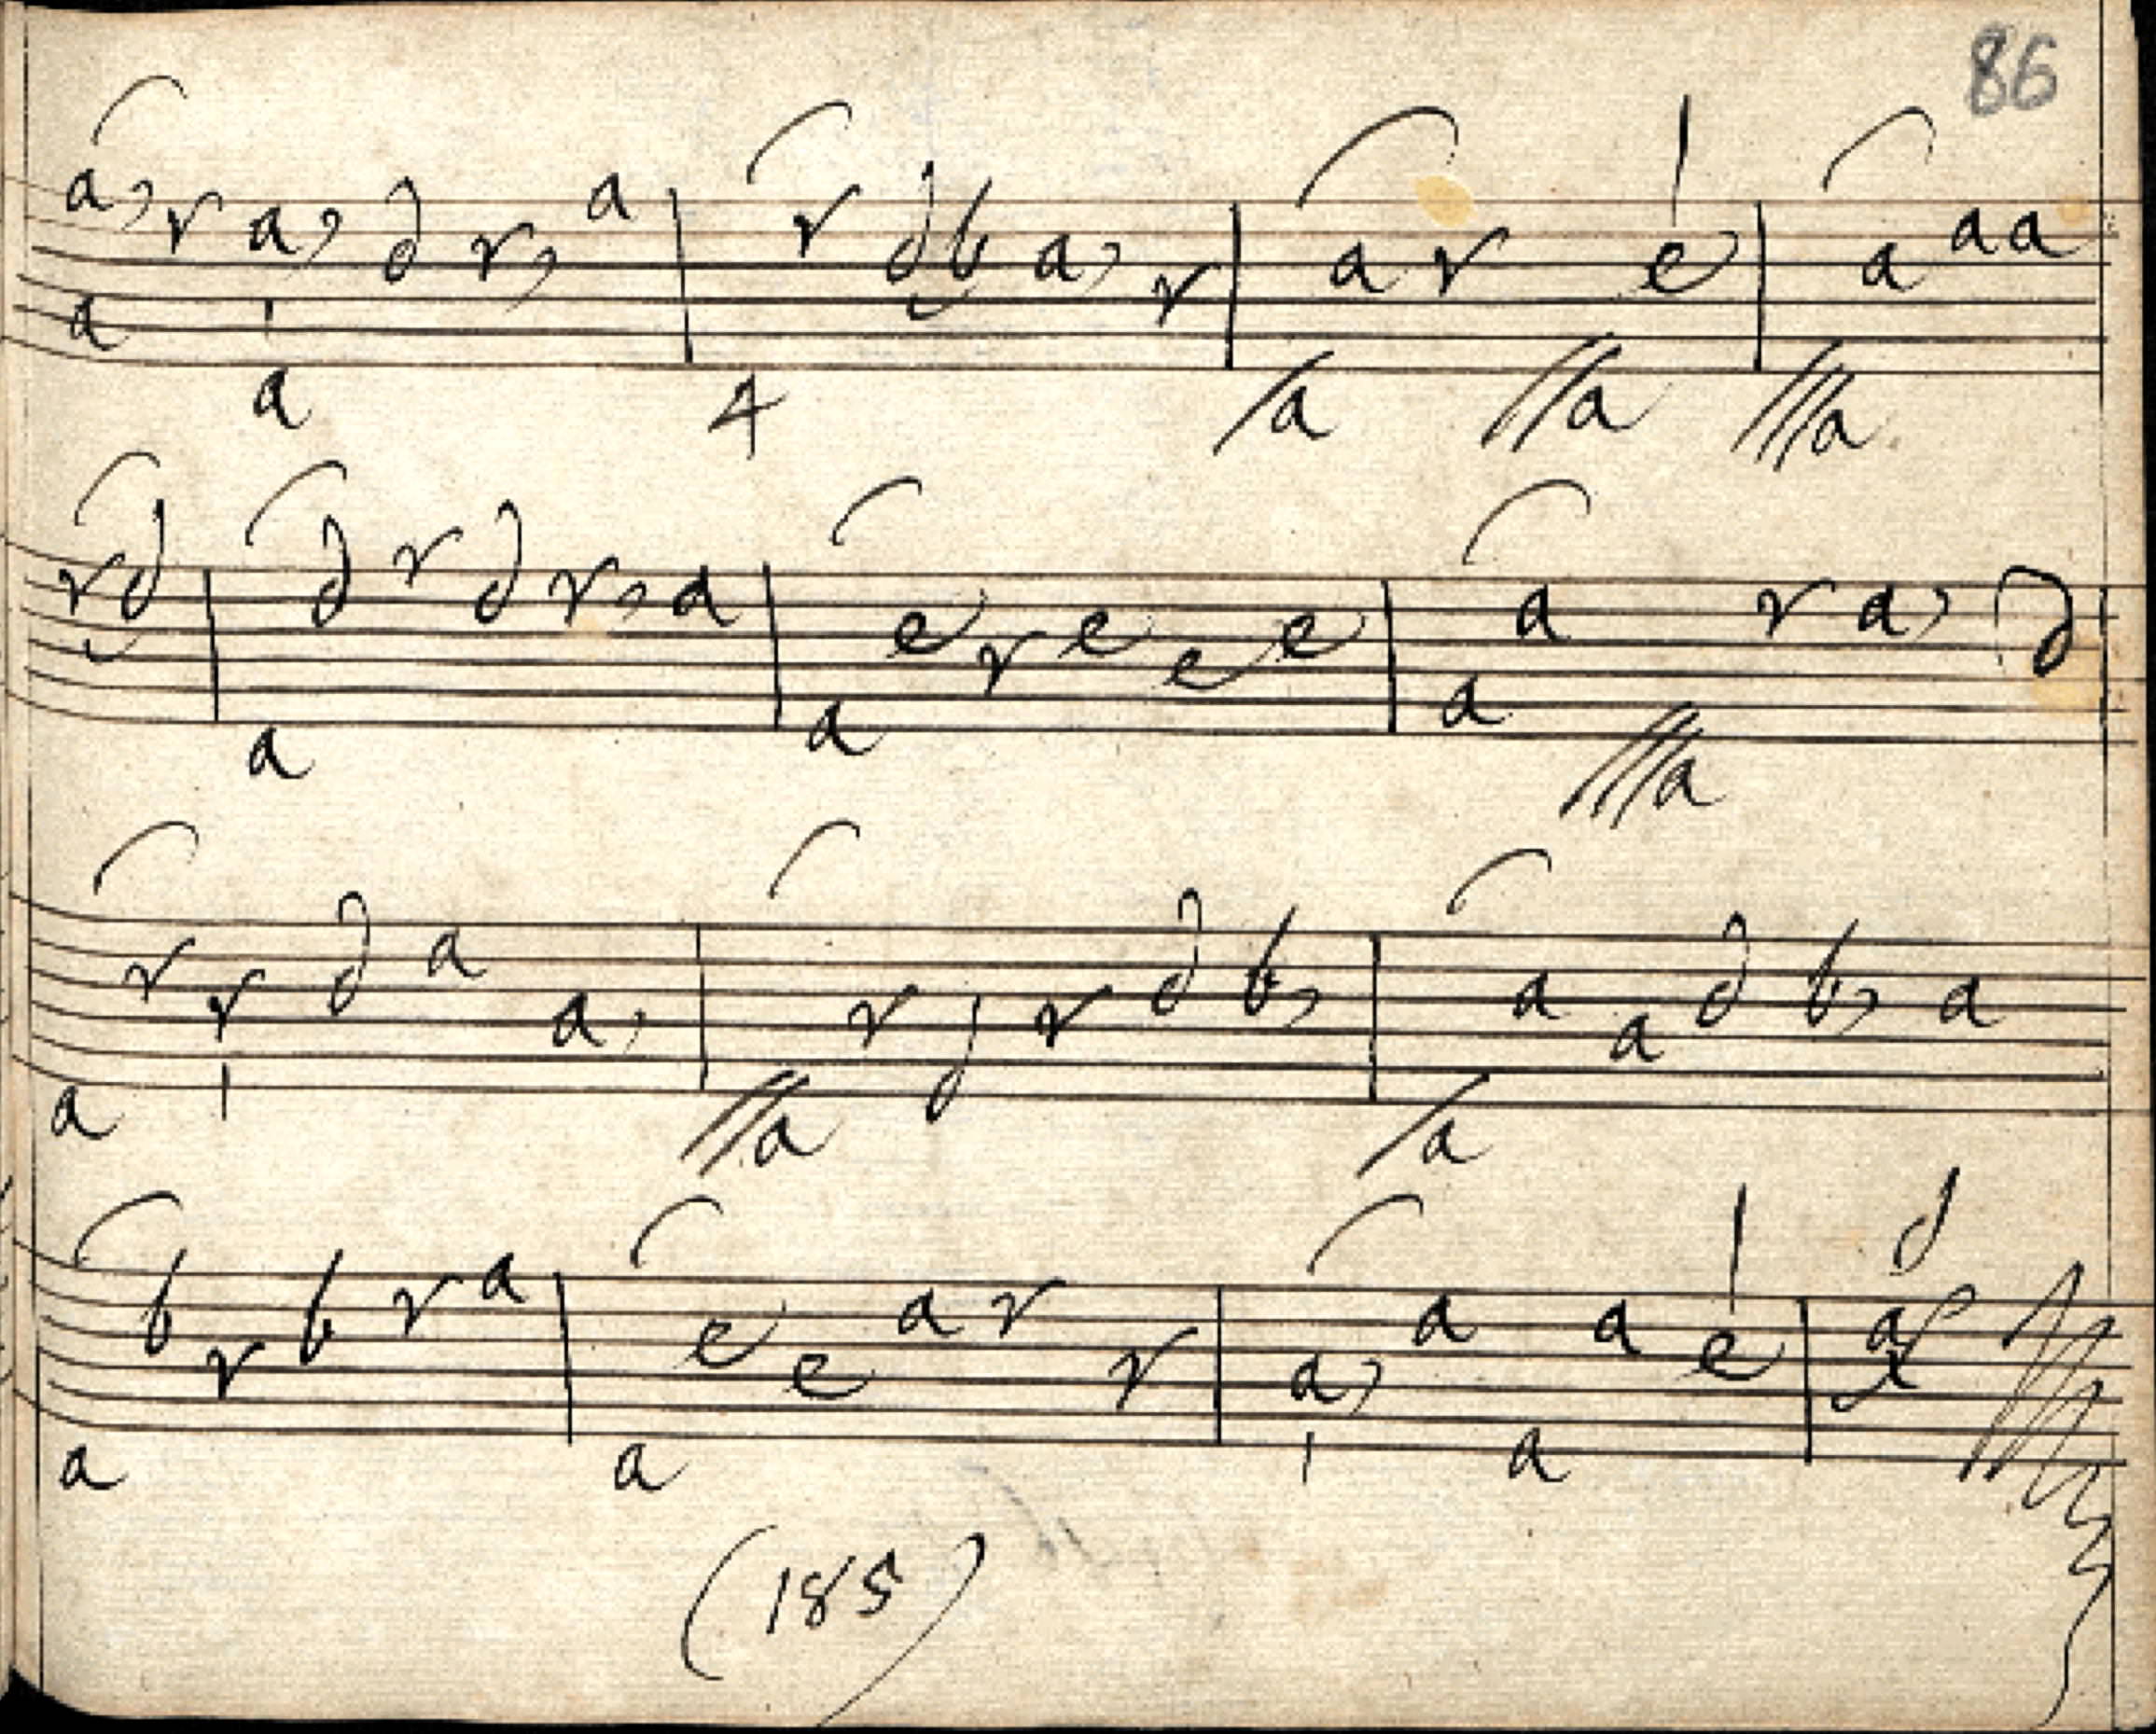 86
a, r a, d r, a | r d b a, r | a r e | a a a
a a 4 /a //a ///a
r d | d r d r, a | e r e e e | a r a, d
a a a ///a
r r d a a, | r r d b, | a a d b, a
a //a /a
b r b r a | e e a r r | a, a a e | a
a a a
(185)